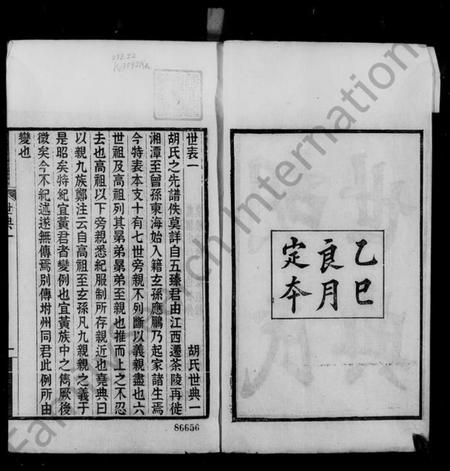 乙巳
良月
定本
世表一
胡氏世典一
胡氏之先譜佚莫詳自五臻君由江西遷茶陵再徙
湘潭至曾孫東海始入籍玄孫應鵬乃起家諸生焉
今特表本支十有七世旁親不列斷以義親盡也六
世祖及高祖列其昴弟昴弟至親也推而上之不忍
去也高祖以下旁親悉紀服制所存親近也堯典曰
以親九族鄭注云自高祖至玄孫凡九親親之義于
是昭矣特紀宜黃君者變例也宜黃族中之儁厥後
徵矣今不紀述遂無傳焉別傳坿州同君此例所由
變也
世典一
一
86656
FamilySearch International